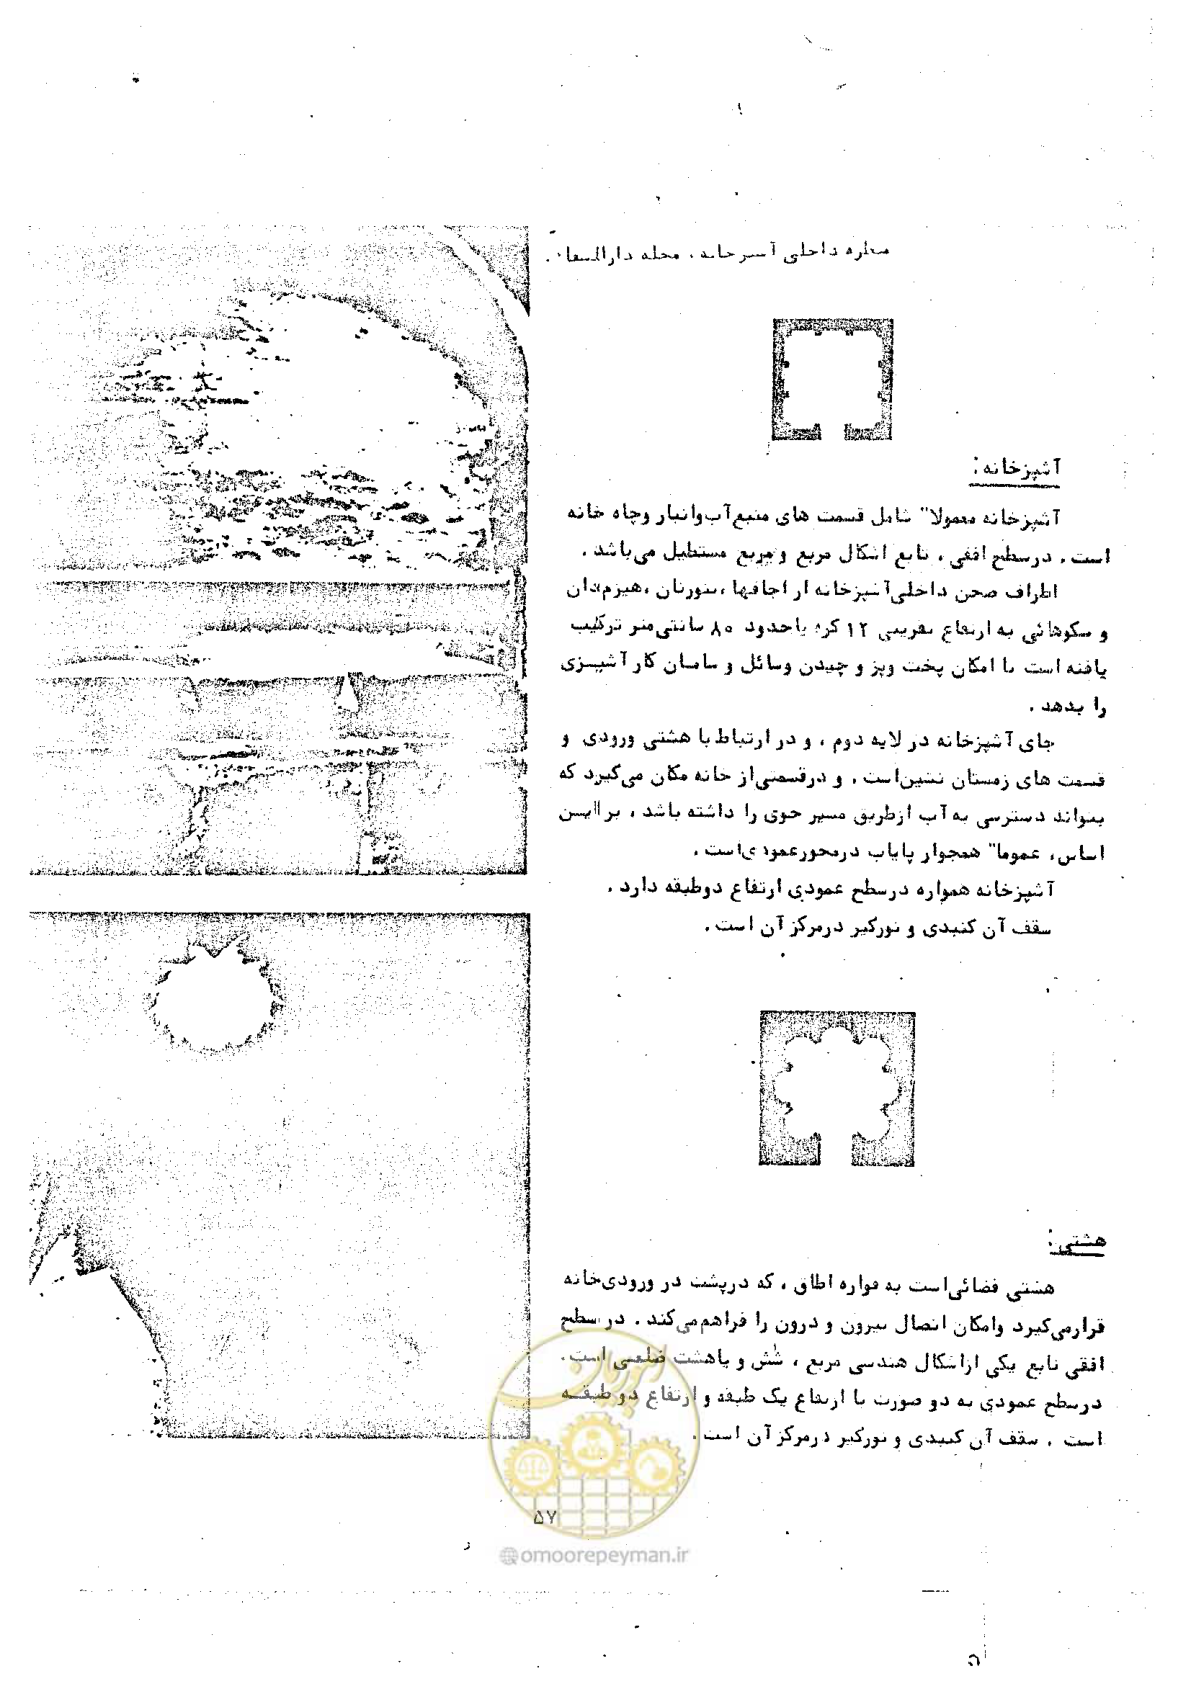 منظره داخلی آشپزخانه ، محله دارالشفاء .
آشپزخانه :
آشپزخانه معمولا" شامل قسمت های منبع‌آب‌وانبار وچاه خانه
است . درسطح افقی ، تابع اشکال مربع و مربع مستطیل می‌باشد .
اطراف صحن داخلی‌آشپزخانه از اجاقها ،تنورنان ،هیزم‌دان
و سکوهائی به ارتفاع تقریبی ۱۲ گره یاحدود ۸۰ سانتی‌متر ترکیب
یافته است تا امکان پخت وپز و چیدن وسائل و سامان کار آشپـزی
را بدهد .
جای آشپزخانه در لایه دوم ، و در ارتباط با هشتی ورودی و
قسمت های زمستان نشین‌است . و درقسمتی‌از خانه مکان می‌گیرد که
بتواند دسترسی به آب ازطریق مسیر جوی را داشته باشد ، بر ایـن
اساس، عموما" همجوار پایاب درمحورعمودی‌است .
آشپزخانه همواره درسطح عمودی ارتفاع دوطبقه دارد .
سقف آن گنبدی و نورگیر درمرکز آن است .
هشتی :
هشتی فضائی‌است به قواره اطاق ، که درپشت در ورودی‌خانه
قرارمی‌گیرد وامکان اتصال بیرون و درون را فراهم‌می‌کند . در سطح
افقی تابع یکی ازاشکال هندسی مربع ، شش و یاهشت ضلعی است .
درسطح عمودی به دو صورت با ارتفاع یک طبقه و ارتفاع دو طبقـه
است . سقف آن گنبدی و نورگیر درمرکز آن است .
۵۷
@omoorepeyman.ir